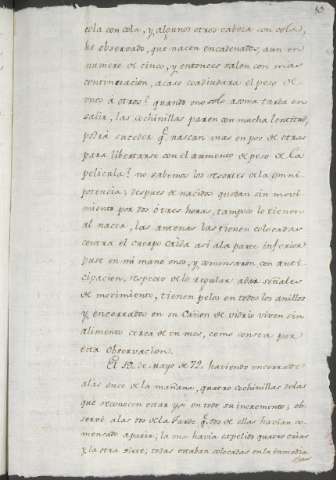 cola con cola, y algunos otros cabeza con cola,
he observado, que nacen encadenados, aun en
numero de cinco, y entonces salen con mas
continuacion, acaso coadiubara el peso de
unos a otros? quando uno solo asoma tarda en
salir, las cochinillas paren con mucha lentitud,
podrá suceder q.^e nascan unas en pos de otras
para libertarse con el aumento de peso de la
pelicula? no sabemos los resortes de la omni
potencia; despues de nacidos quedan sin movi
miento por dos ó tres horas, tampoco lo tienen
al nacer, las antenas las tienen colocadas
contra el cuerpo acia la parte inferior
puse en mi mano once, y comensaron con anti
cipacion, respecto de lo regular a dar señales
de movimiento, tienen pelos en todos los anillos
y encerrados en un cañon de vidrio viven sin
alimento cerca de un mes, como consta por
esta observacion.
El 19. de Mayo de 72. haviendo encerrado
a las once de la mañana, quatro cochinillas solas
que reconoci estar ya en todo su incremento; ob
servé a las dos de la tarde q.^e dos de ellas havian co
mensado a parir; la una havia expelido quatro crias
y la otra siete; estas estaban colocadas en la inmedia